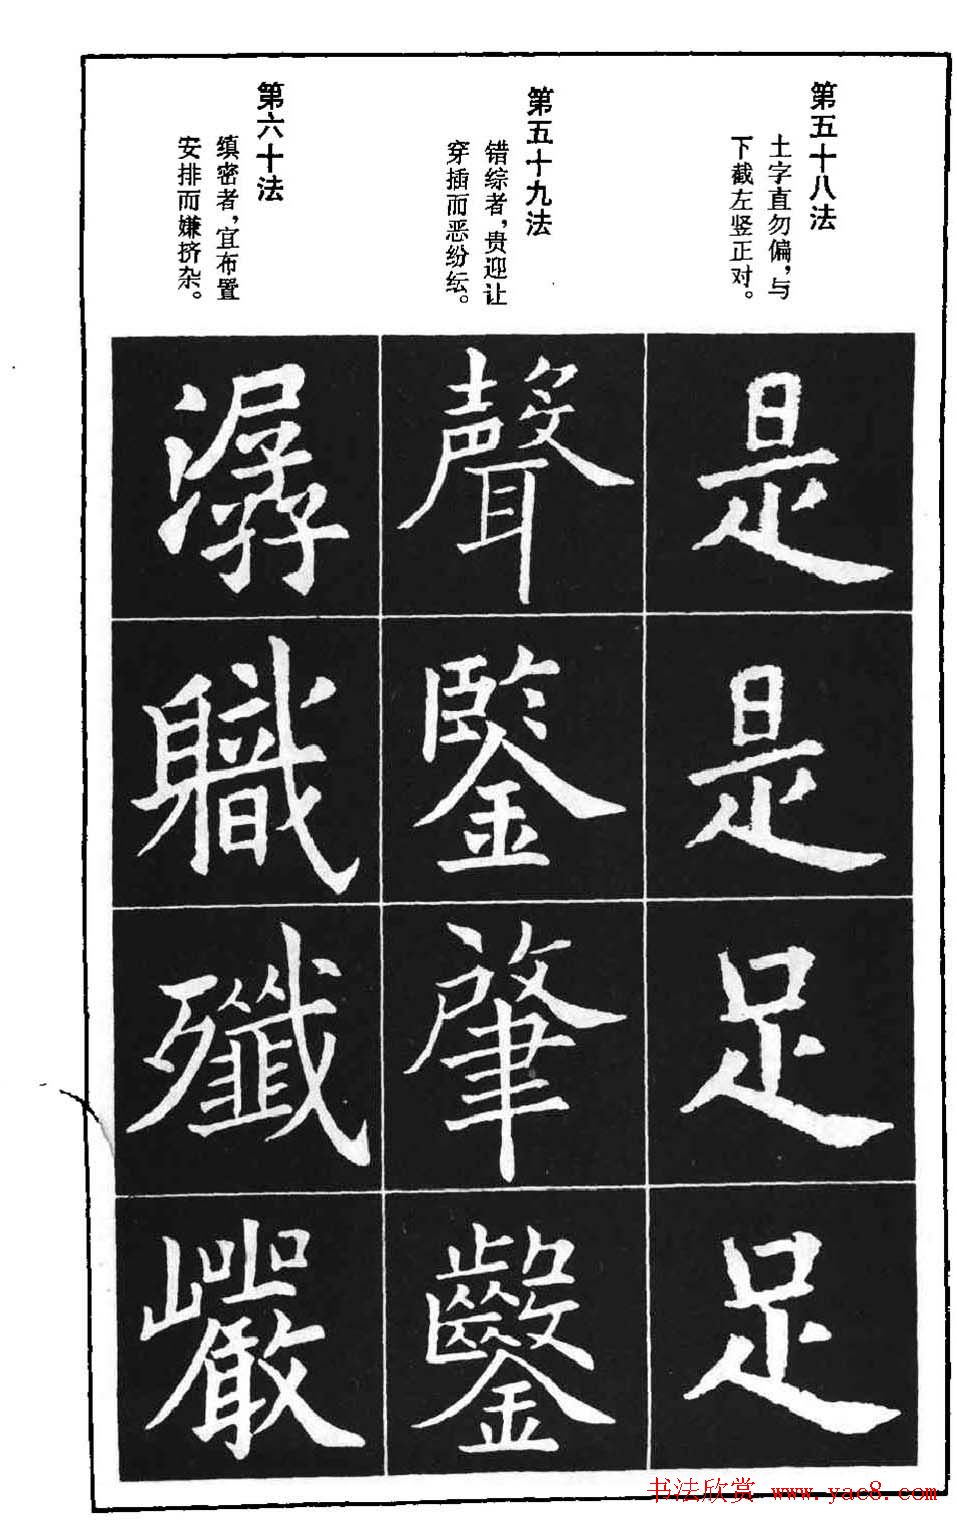 第五十八法
土字直勿偏，与
下截左竖正对。
第五十九法
错综者，贵迎让
穿插而恶纷纭。
第六十法
缜密者，宜布置
安排而嫌挤杂。
是
是
足
足
聲
鑒
肇
潺
職
殲
巖
书法欣赏 www.yac8.com